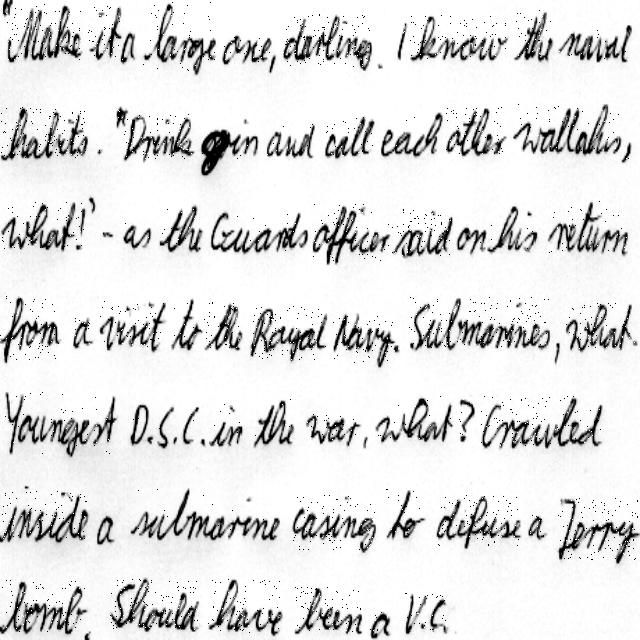 "Make it a large one, darling. I know the naval
habits. "Drink gin and call each other Wallahs,
what!' - as the Guards officer said on his return
from a visit to the Royal Navy. Submarines, what.
Youngest D.S.C. in the war, what? Crawled
inside a submarine casing to defuse a Jerry
bomb. Should have been a V.C.